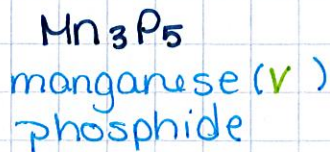 Mn3P5
manganese (V)
phosphide